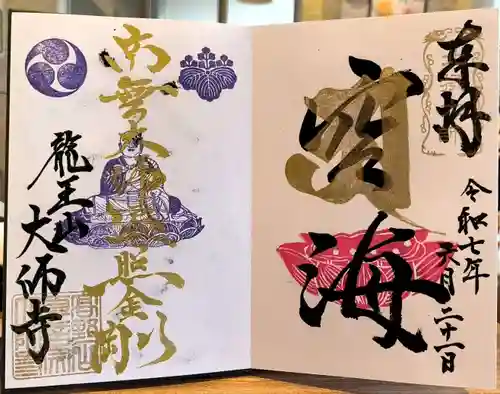 奉拝
令和七年
六月二十一日
空
海
南無大師遍照金剛
龍王山
大師寺